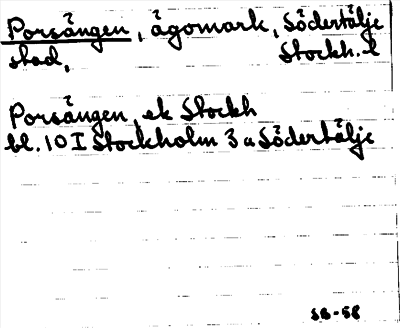 Porsången, ägomark, Södertälje
stad, Stockh. l
Porsången, ek Stockh
bl. 10 I Stockholm 3 a Södertälje